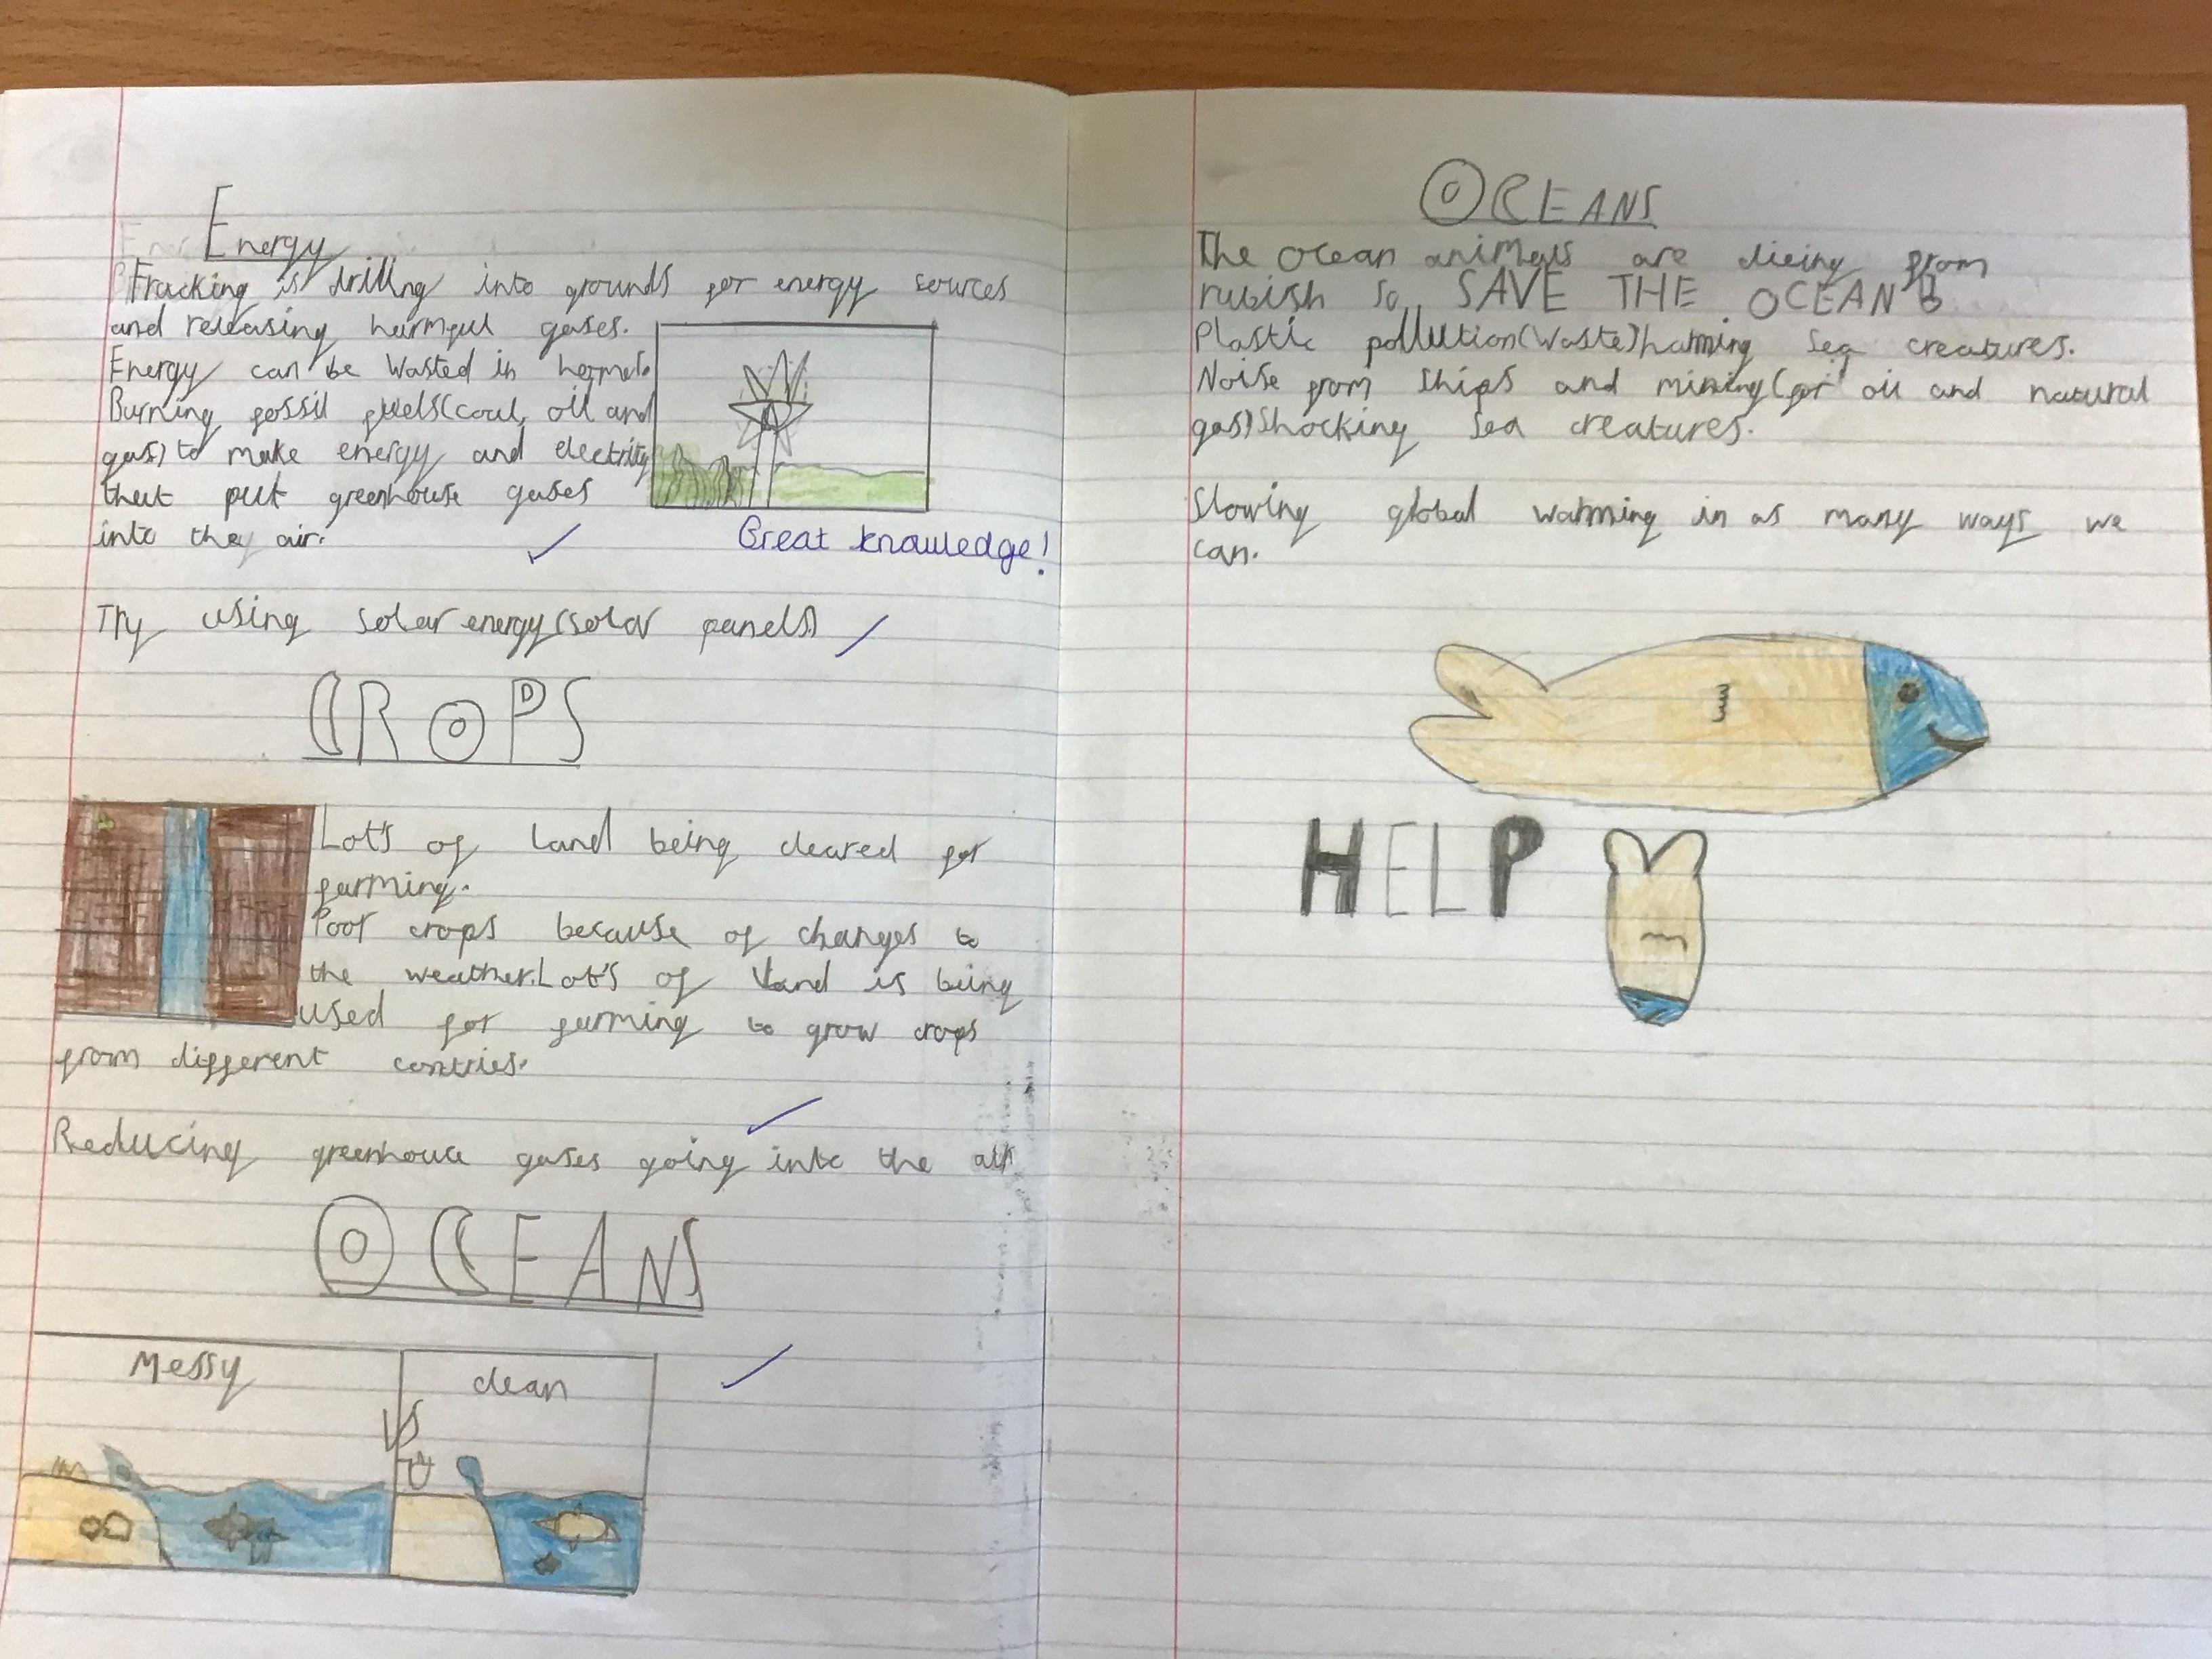 Energy
Fracking is drilling into grounds for energy sources
and releasing harmful gases.
Energy can be wasted in
Burning fossil fuels(coal, oil and
gas) to make energy and electrity
that put greenhouse gases
into the air.
Great knowledge!
Try using solar energy(solar panels)
CROPS
Lot's of land being cleared for
farming.
Poor crops because of changes to
the weather. Lot's of land is being
used for farming to grow crops
from different contries.
Reducing greenhouce gases going into the air
OCEANS
Messy
clean
VS
OCEANS
The ocean animals are dieing from
rubish so SAVE THE OCEAN
Plastic pollution(waste)harming sea creatures.
Noise from ships and mining(for oil and natural
gas)shocking sea creatures.
Slowing global warming in as many ways we
can.
HELP